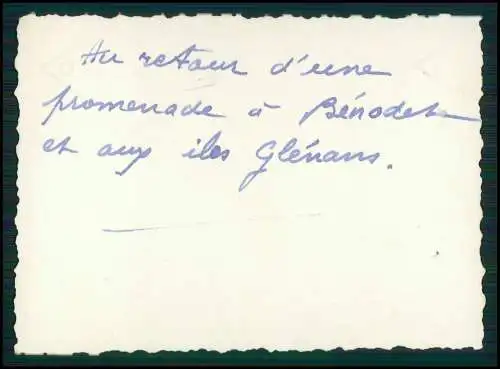 Au retour d'une
promenade à Bénodet
et aux iles Glénans.